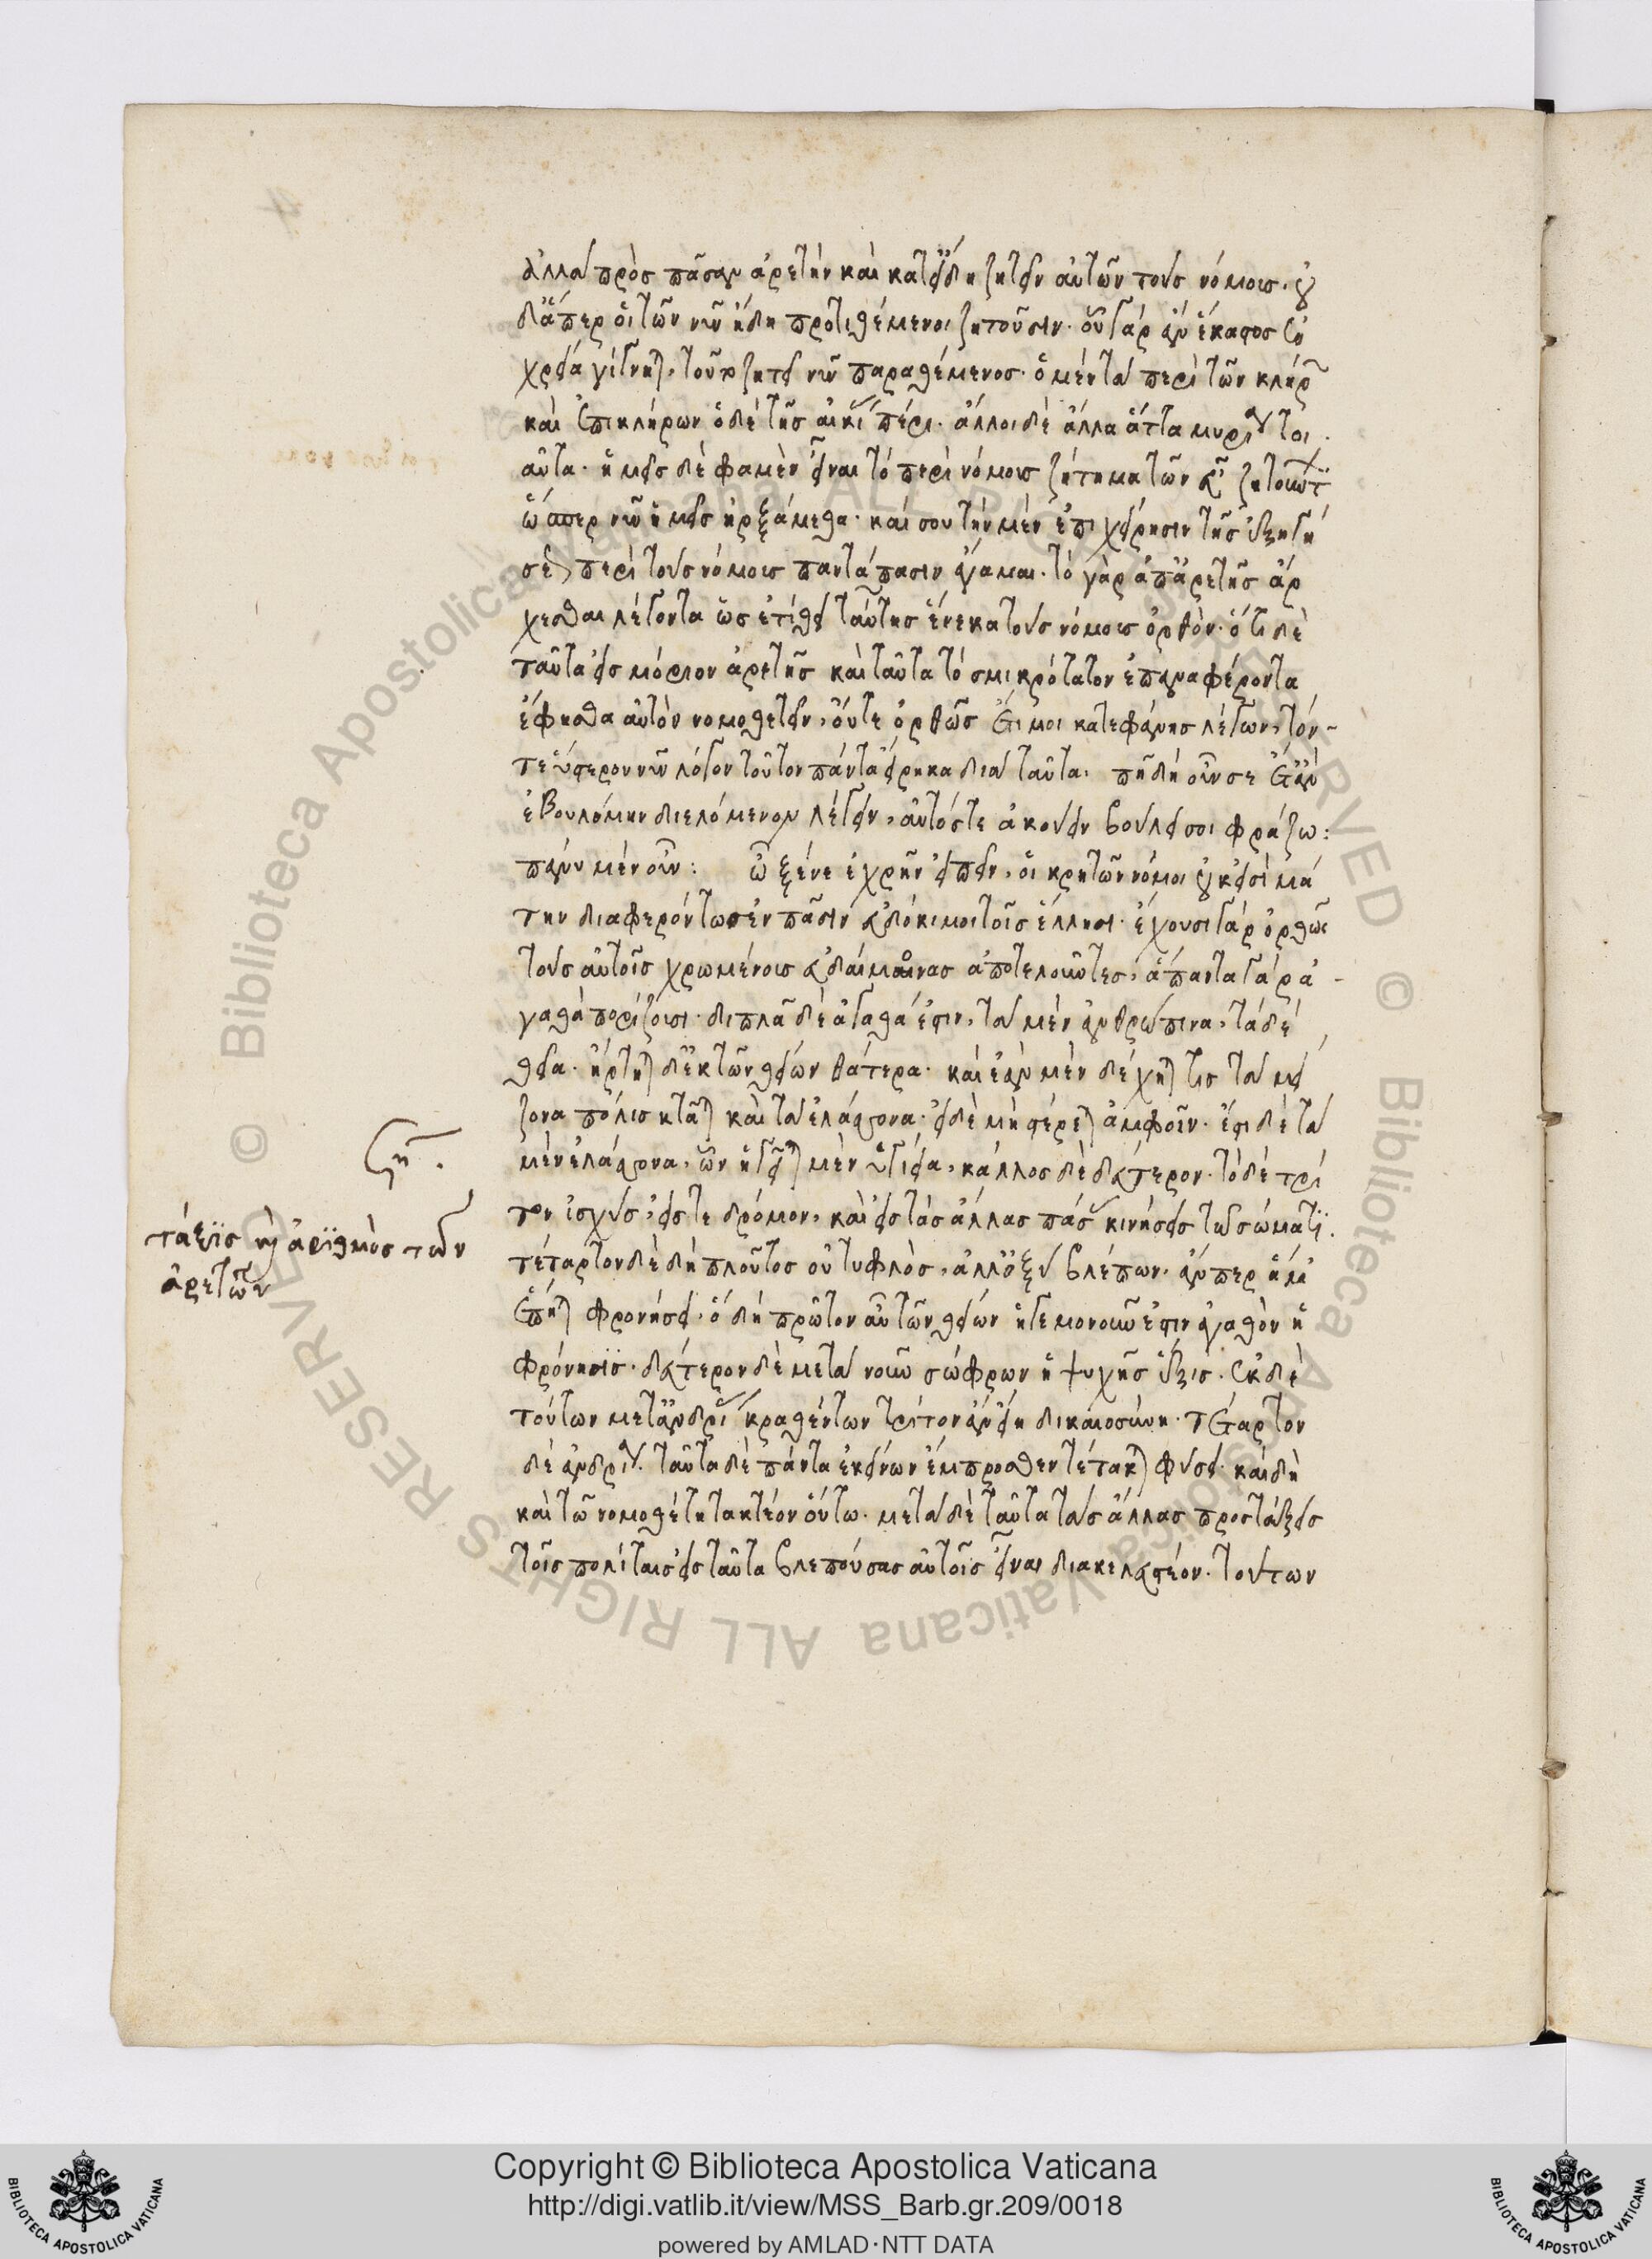 ἀλλὰ πρὸς πᾶσαν ἀρετὴν καὶ κατ' εἴδη ζητεῖν αὐτῶν τοὺς νόμους. οὐ
δ' ἅπερ οἱ τῶν νῦν ἤδη προτιθέμενοι ζητοῦσιν. οὗ γὰρ ἂν ἕκαστος ἐν
χρείᾳ γίγνηται, τοῦτο ζητεῖ νῦν παραθέμενος. ὁ μὲν τὰ περὶ τῶν κλήρων
καὶ ἐπικλήρων ὁ δὲ τῆς αἰκίας πέρι. ἄλλοι δὲ ἄλλα ἄττα μυρία τοι
αῦτα. ἡμεῖς δὲ φαμὲν εἶναι τὸ περὶ νόμους ζήτημα τῶν εὖ ζητούντων
ὥσπερ νῦν ἡμεῖς ἠρξάμεθα. καί σου τὴν μὲν ἐπιχείρησιν τῆς ἐξηγή
σεως περὶ τοὺς νόμους παντάπασιν ἄγαμαι. τὸ γὰρ ἀπ' ἀρετῆς ἄρ
χεσθαι λέγοντα ὡς ἐτίθει ταύτης ἕνεκα τοὺς νόμους ὀρθόν. ὅτι δὲ
ταῦτα εἰς μόριον ἀρετῆς καὶ ταῦτα τὸ σμικρότατον ἐπαναφέροντα
ἔφησθα αὐτὸν νομοθετεῖν, οὔτε ὀρθῶς ἔτι μοι κατεφάνης λέγων, τόν
τε ὕστερον νῦν λόγον τοῦτον πάντα εἴρηκα διὰ ταῦτα. πῇ δὴ οὖν σε ἔτ' ἂν
ἐβουλόμην διελόμενον λέγειν, αὐτός τε ἀκούειν βούλει σοι φράζω:
πάνυ μὲν οὖν: ὦ ξένε ἐχρῆν εἰπεῖν, οἱ κρητῶν νόμοι οὐκ εἰσὶ μά
την διαφερόντως ἐν πᾶσιν εὐδόκιμοι τοῖς ἕλλησι. ἔχουσι γὰρ ὀρθῶς
τοὺς αὐτοῖς χρωμένους εὐδαίμονας ἀποτελοῦντες, ἅπαντα γὰρ ἀ
γαθὰ πορίζουσι. διπλᾶ δὲ ἀγαθά ἐστιν, τὰ μὲν ἀνθρώπινα, τὰ δὲ
θεῖα. ἤρτηται δ' ἐκ τῶν θείων θάτερα. καὶ ἐὰν μὲν δέχηταί τις τὰ μεί
ζονα πόλις κτᾶται καὶ τὰ ἐλάττονα. εἰ δὲ μὴ στέρεται ἀμφοῖν. ἔστι δὲ τὰ
μὲν ἐλάττονα, ὧν ἡγεῖται μὲν ὑγίεια, κάλλος δὲ δεύτερον. τὸ δὲ τρί
τον ἰσχὺς, εἴς τε δρόμον, καὶ εἰς τὰς ἄλλας πάσας κινήσεις τῷ σώματι.
τέταρτον δὲ δὴ πλοῦτος οὐ τυφλὸς, ἀλλ' ὀξὺ βλέπων, ἄνπερ ἅμα
ἕπηται φρονήσει, ὃ δὴ πρῶτον αὖ τῶν θείων ἡγεμονοῦν ἐστιν ἀγαθὸν ἡ
φρόνησις. δεύτερον δὲ μετὰ νοῦ σώφρων ἡ ψυχῆς ἕξις. ἐκ δὲ
τούτων μετ' ἀνδρίας κραθέντων τρίτον ἂν εἴη δικαιοσύνη. τέταρτον
δὲ ἀνδρία. ταῦτα δὲ πάντα ἐκείνων ἔμπροσθεν τέτακται φύσει. καὶ δὴ
καὶ τῷ νομοθέτῃ τακτέον οὕτω. μετὰ δὲ ταῦτα τὰς ἄλλας προστάξεις
τοῖς πολίταις εἰς ταῦτα βλεπούσας αὐτοῖς εἶναι διακελευστέον. τούτων
ση.
τάξις καὶ ἀριθμὸς τῶν
ἀρετῶν
Copyright © Biblioteca Apostolica Vaticana
http://digi.vatlib.it/view/MSS_Barb.gr.209/0018
powered by AMLAD·NTT DATA
BIBLIOTECA APOSTOLICA VATICANA
BIBLIOTECA APOSTOLICA VATICANA
© Biblioteca Apostolica Vaticana ALL RIGHTS RESERVED
© Biblioteca Apostolica Vaticana ALL RIGHTS RESERVED